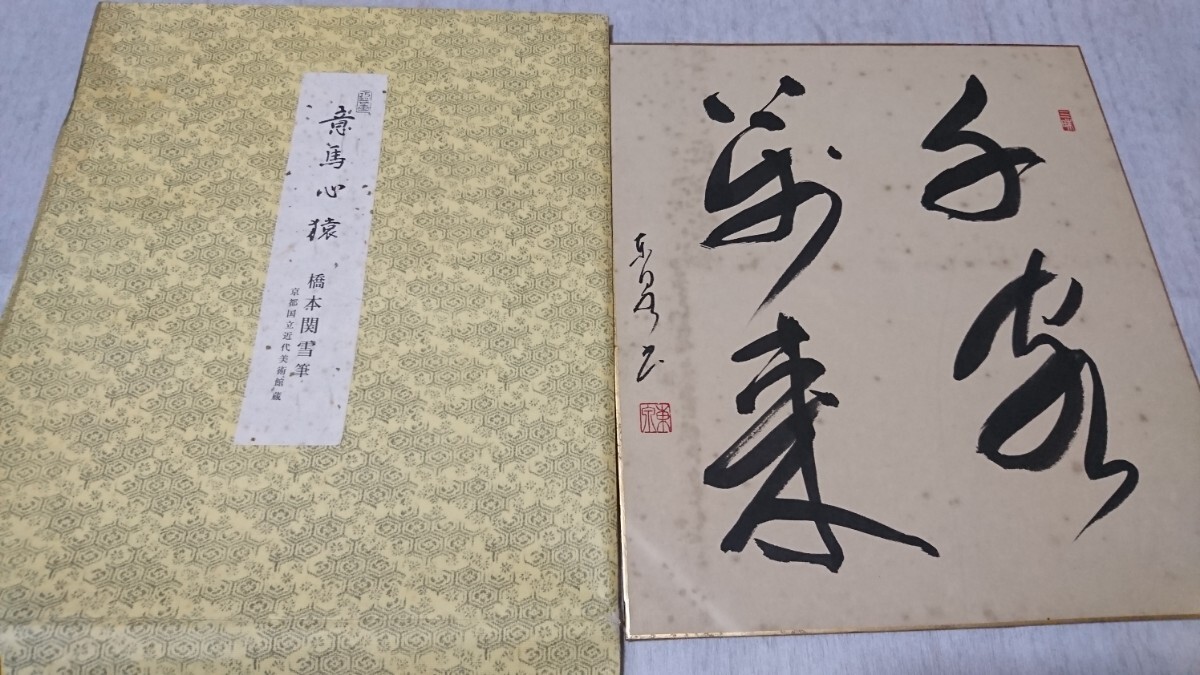 意馬心猿
橋本関雪筆
京都国立近代美術館蔵
千客
萬来